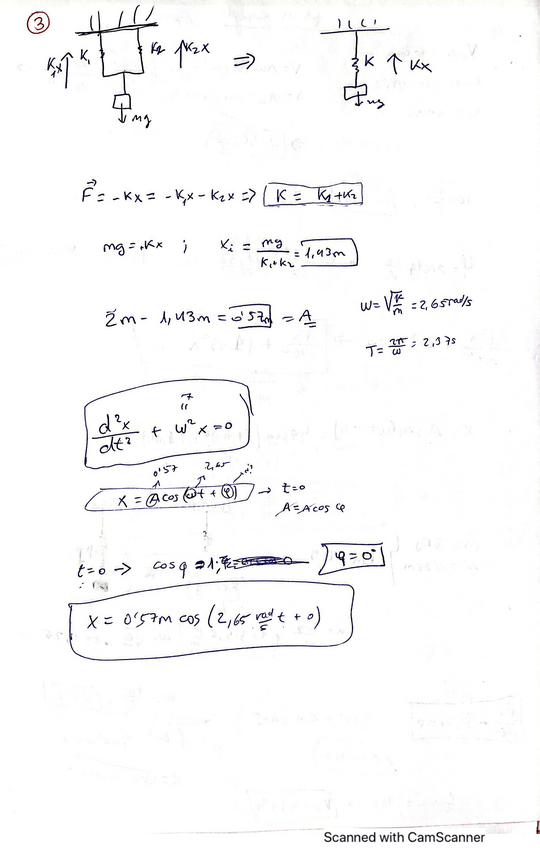 ③
K₁ K₂ K₁x K₂x mg ⇒ K Kx mg
F⃗ = -Kx = -K₁x - K₂x ⇒ K = K₁+K₂
mg = +Kx ; xᵢ = mg/(K₁+K₂) = 1,43m
2m - 1,43m = 0'57m = A
W = √(K/m) = 2,65 rad/s
T = 2π/ω = 2,37s
7
"
d²x/dt² + ω²x = 0
0'57 2,65
x = A cos(ωt + φ) → t=0
A = A cos φ
?
t=0 → cos φ = 1; φ = 0°
x = 0'57m cos (2,65 rad/s t + 0)
Scanned with CamScanner